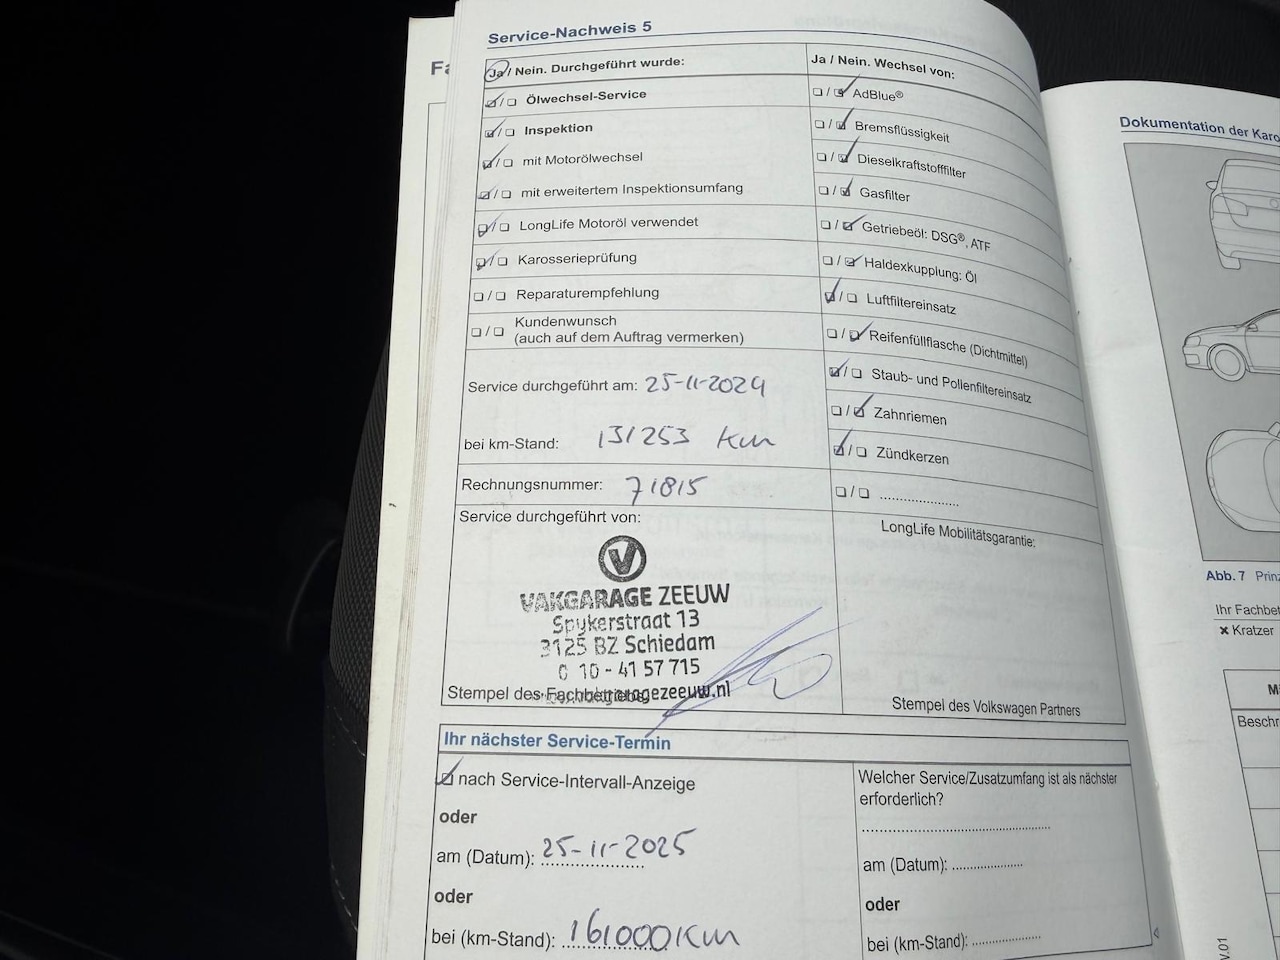 Service-Nachweis 5
Ja / Nein. Durchgeführt wurde:
Ölwechsel-Service
Inspektion
mit Motorölwechsel
mit erweitertem Inspektionsumfang
LongLife Motoröl verwendet
Karosserieprüfung
Reparaturempfehlung
Kundenwunsch
(auch auf dem Auftrag vermerken)
Service durchgeführt am: 25-11-2024
bei km-Stand: 131253 Km
Rechnungsnummer: 71815
Service durchgeführt von:
VAKGARAGE ZEEUW
Spykerstraat 13
3125 BZ Schiedam
0 10 - 41 57 715
Stempel des Fachbetriebes
Ja / Nein. Wechsel von:
AdBlue®
Bremsflüssigkeit
Dieselkraftstofffilter
Gasfilter
Getriebeöl: DSG®, ATF
Haldexkupplung: Öl
Luftfiltereinsatz
Reifenfüllflasche (Dichtmittel)
Staub- und Pollenfiltereinsatz
Zahnriemen
Zündkerzen
....................
LongLife Mobilitätsgarantie:
Stempel des Volkswagen Partners
Ihr nächster Service-Termin
nach Service-Intervall-Anzeige
oder
am (Datum): 25-11-2025
oder
bei (km-Stand): 161000 Km
Welcher Service/Zusatzumfang ist als nächster
erforderlich?
am (Datum):
oder
bei (km-Stand):
Dokumentation der Karo
Abb. 7 Prinz
Ihr Fachbet
× Kratzer
Beschr